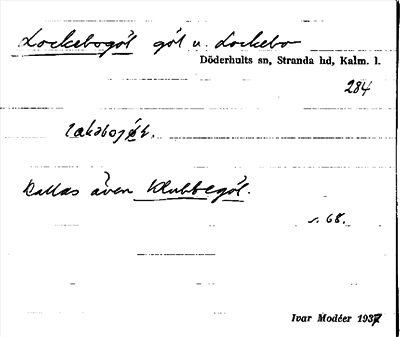 Lockebogöl göl u. Lockebo
Döderhults sn, Stranda hd, Kalm. l.
284
Kallas även Klubbegöl.
s. 68.
Ivar Modéer 1937